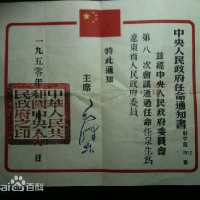 中央人民政府任命通知書
府字第 號
茲經中央人民政府委員會
第八次會議通過任命任生為
遼東省人民政府委員
特此通知
主席
毛澤東
一九五〇年
日
中華人民共和國中央人民政府之印
Bai百科